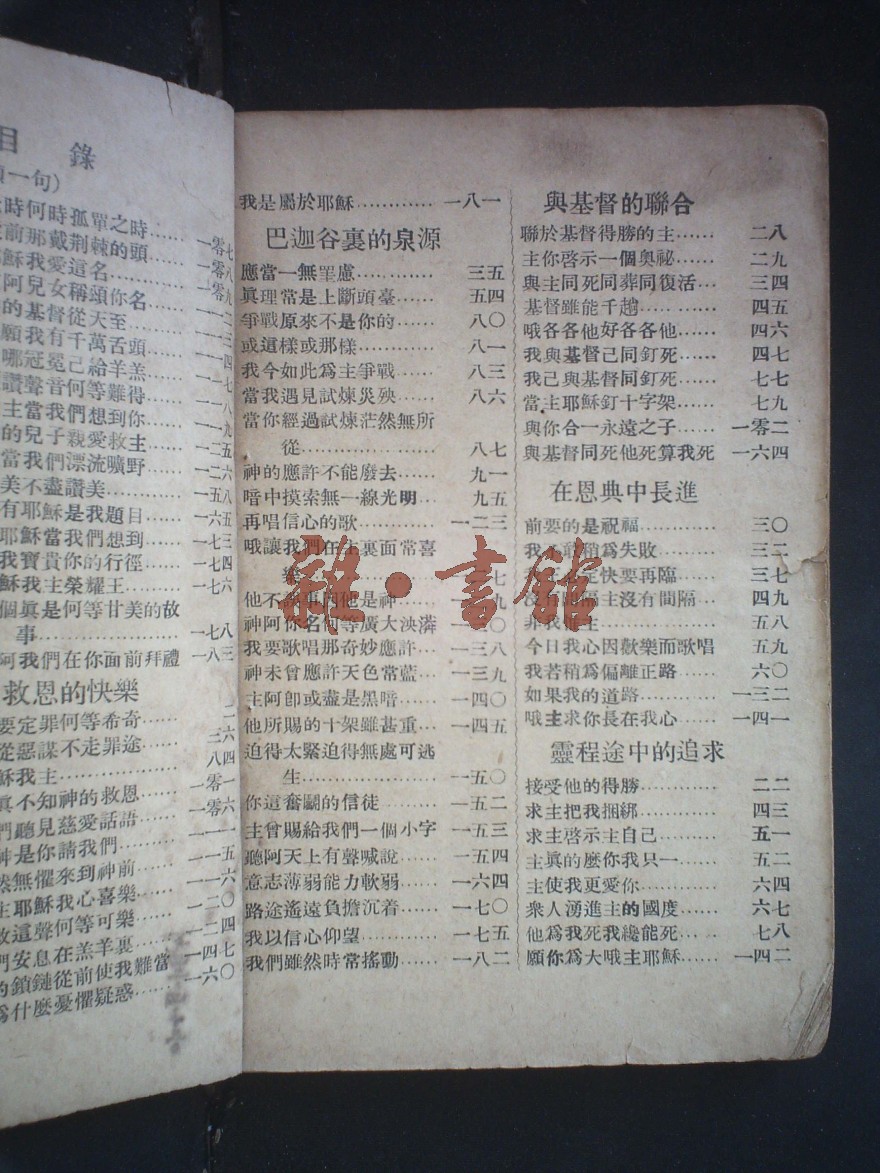 目錄
一句）
時何時孤單之時……一零七
前那戴荊棘的頭……一零八
穌我愛這名……一零九
阿兒女稱頭你名
的基督從天至
願我有千萬舌頭
哪冠冕己給羊羔……一一七
讚聲音何等難得……一一八
主當我們想到你……一一九
的兒子親愛救主……一二五
當我們漂流曠野……一二六
美不盡讚美……一五八
有耶穌是我題目……一六五
耶穌當我們想到……一七三
我寶貴你的行徑……一七四
穌我主榮耀王……一七六
個眞是何等甘美的故
事……一七八
阿我們在你面前拜禮一八三
救恩的快樂
要定罪何等希奇……二
從惡謀不走罪途……三六
穌我主……八四
眞不知神的救恩……一零一
們聽見慈愛話語……一零六
神是你請我們……一一一
然無懼來到神前……一一五
主耶穌我心喜樂……一一六
故這聲何等可樂……一二〇
們安息在羔羊裏……一二四
的鎖鏈從前使我難當一四七
爲什麼憂懼疑惑……一六〇
我是屬於耶穌…………一八一
巴迦谷裏的泉源
應當一無罣慮…………三五
眞理常是上斷頭臺……五四
爭戰原來不是你的……八〇
或這樣或那樣…………八一
我今如此爲主爭戰……八三
當我遇見試煉災殃……八六
當你經過試煉茫然無所
從………………八七
神的應許不能廢去……九一
喑中摸索無一線光明…九五
再唱信心的歌…………一二三
哦讓我們在主裏面常喜
樂…………七
他不誤事因他是神……九
神阿你名何等廣大泱漭〇
我要歌唱那奇妙應許…一三八
神未曾應許天色常藍…一三九
主阿卽或盡是黑喑……一四〇
他所賜的十架雖甚重…一四五
迫得太緊迫得無處可逃
生………………一五〇
你這奮鬭的信徒………一五二
主曾賜給我們一個小字一五三
聽阿天上有聲喊說……一五四
意志薄弱能力軟弱……一六四
路途遙遠負擔沉着……一七〇
我以信心仰望…………一七五
我們雖然時常搖動……一八二
與基督的聯合
聯於基督得勝的主……二八
主你啓示一個奧祕……二九
與主同死同葬同復活…三四
基督雖能千趟…………四五
哦各各他好各各他……四六
我與基督己同釘死……四七
我己與基督同釘死……七七
當主耶穌釘十字架……七九
與你合一永遠之子……一零二
與基督同死他死算我死一六四
在恩典中長進
前要的是祝福…………三〇
我不敢稍爲失敗………三二
定快要再臨……三七
沒有間隔主沒有間隔…四九
非我主………五八
今日我心因歡樂而歌唱五九
我若稍爲偏離正路……六〇
如果我的道路…………一三二
哦主求你長在我心……一四一
靈程途中的追求
接受他的得勝…………二二
求主把我捆綁…………四三
求主啓示主自己………五一
主眞的麼你我只一……五二
主使我更愛你…………六四
衆人湧進主的國度……六七
他爲我死我纔能死……七八
願你爲大哦主耶穌……一四二
雜·書館